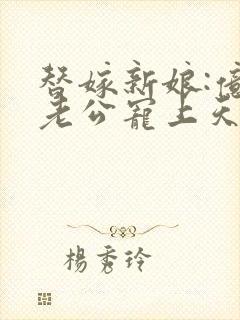 替嫁新娘:億
老公寵上天
楊秀玲